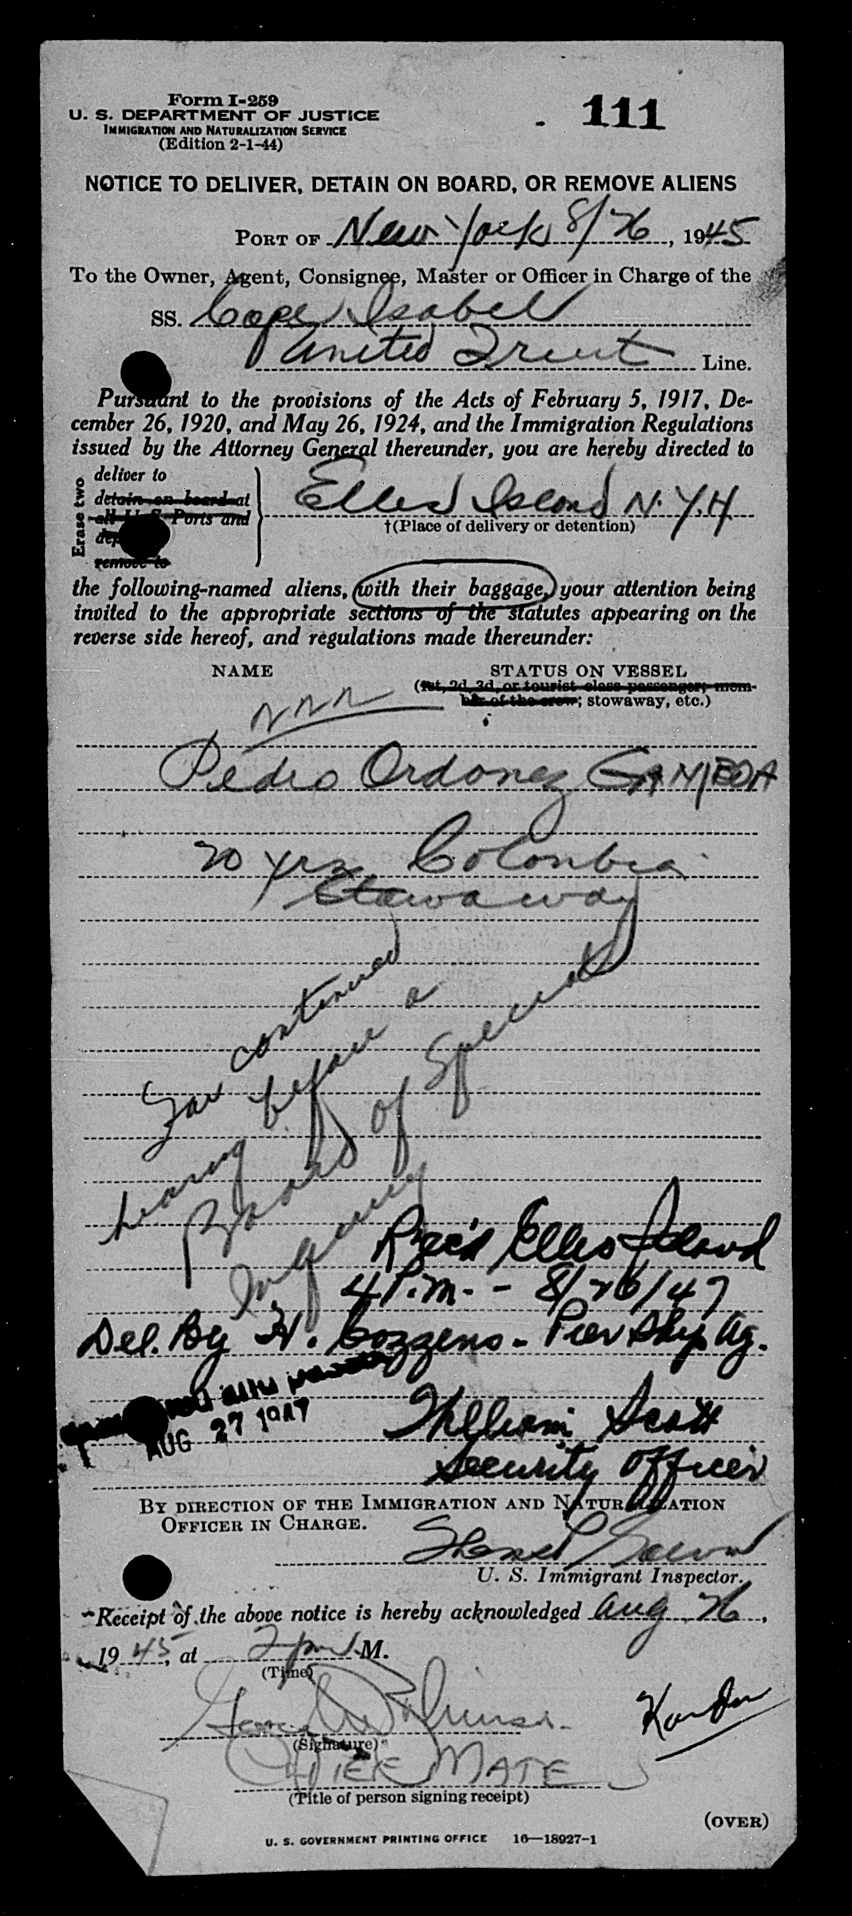 Form I-259
U. S. DEPARTMENT OF JUSTICE
IMMIGRATION AND NATURALIZATION SERVICE
(Edition 2-1-44)
111
NOTICE TO DELIVER, DETAIN ON BOARD, OR REMOVE ALIENS
PORT OF New York 8/26, 1945
To the Owner, Agent, Consignee, Master or Officer in Charge of the
SS. Cape Isabel
United Fruit Line.
Pursuant to the provisions of the Acts of February 5, 1917, De-
cember 26, 1920, and May 26, 1924, and the Immigration Regulations
issued by the Attorney General thereunder, you are hereby directed to
Erase two
deliver to
detain on board at
all U. S. Ports and
remove to
Ellis Island N.Y.H
†(Place of delivery or detention)
the following-named aliens, with their baggage, your attention being
invited to the appropriate sections of the statutes appearing on the
reverse side hereof, and regulations made thereunder:
NAME STATUS ON VESSEL
(1st, 2d, 3d, or tourist class passenger; mem-
ber of the crew; stowaway, etc.)
Pedro Ordonez GAMBOA
20 yrs Colombia
Stowaway
For continued
hearing before a
Board of Special
Inquiry
Rec'd Ellis Island
4 P.M. - 8/26/47
Del. By H. Cozzens - Pier Shp Ag.
AUG 27 1947
William Scott
Security Officer
BY DIRECTION OF THE IMMIGRATION AND NATURALIZATION
OFFICER IN CHARGE.
U. S. Immigrant Inspector.
Receipt of the above notice is hereby acknowledged Aug 26,
1945, at 2 pm M.
(Time)
(Signature)
CHIEF MATE
(Title of person signing receipt)
(OVER)
U. S. GOVERNMENT PRINTING OFFICE 16—18927-1